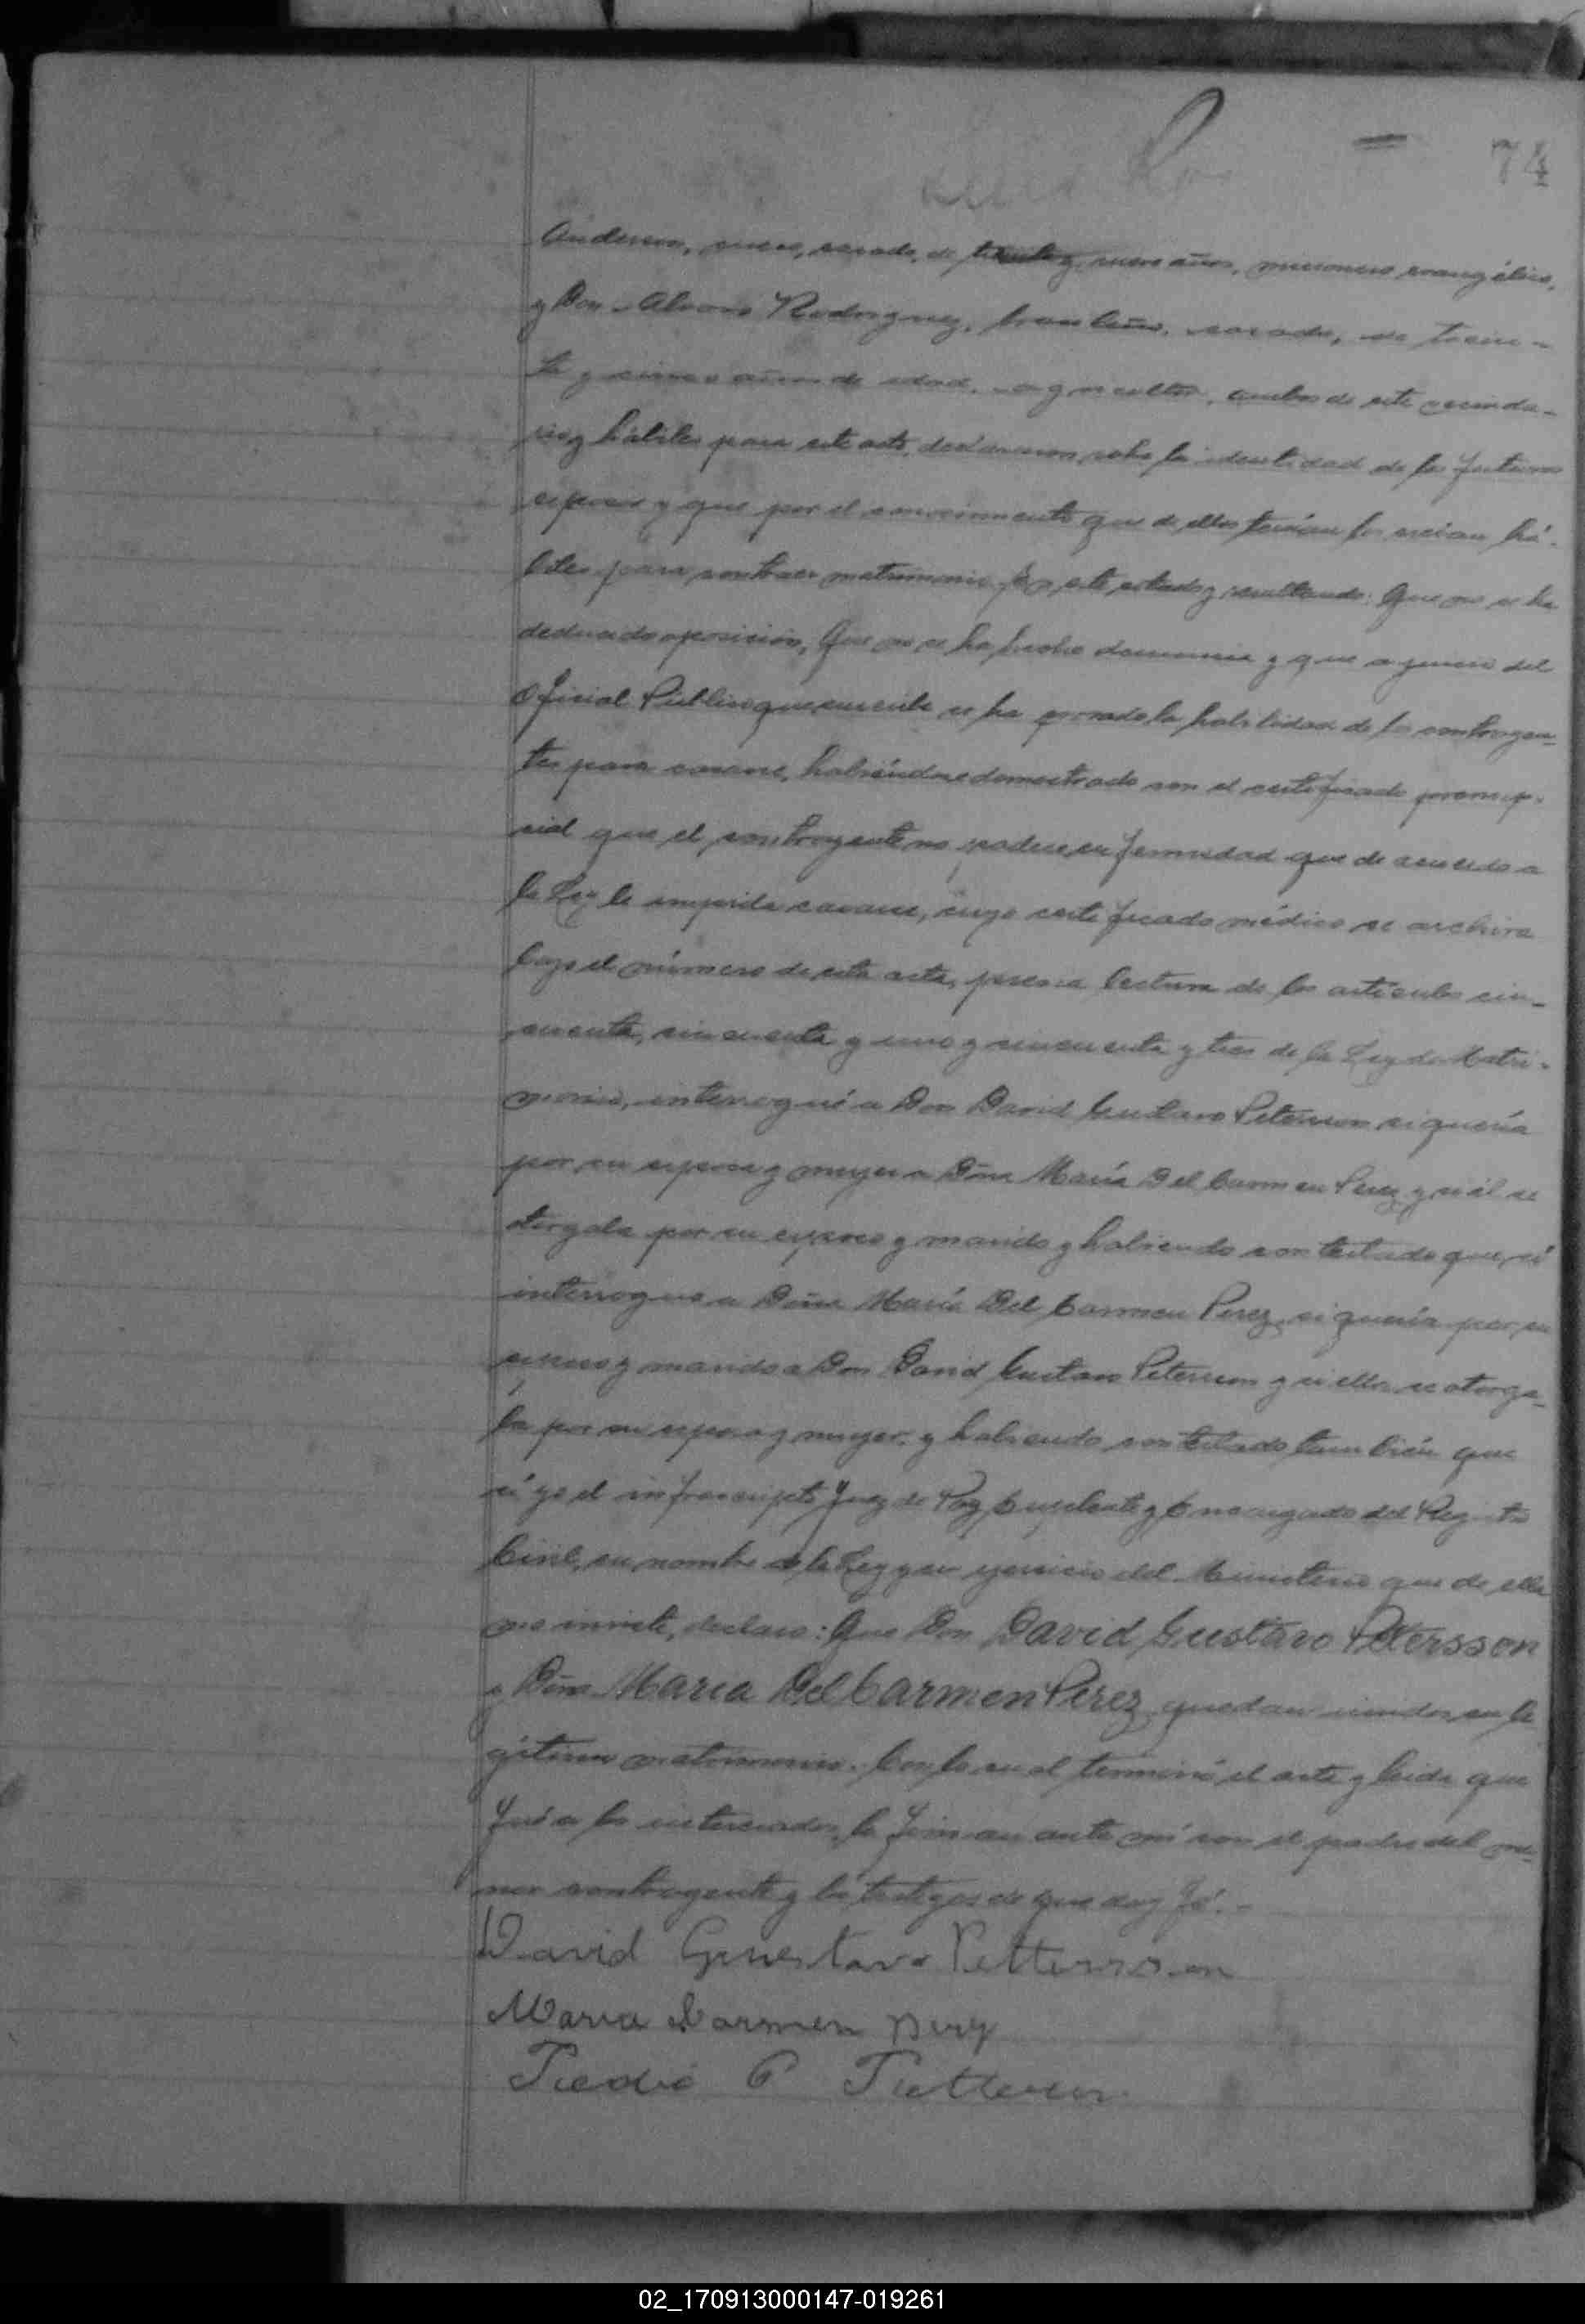 74
Anderson, sueco, casado, de treinta y nueve años, misionero evangélico,
y Don Alvaro Rodriguez, brasileño, casado, de trein-
ta y cinco años de edad, agricultor, ambos de este vecinda-
rio y hábiles para este acto, declararon sobre la identidad de los futuros
esposos y que por el conocimiento que de ellos tenían los creían há-
biles para contraer matrimonio. En este estado y resultando: Que no se ha
deducido oposición, Que no se ha hecho denuncia y que a juicio del
Oficial Público que suscribe se ha probado la habilidad de los contrayen-
tes para casarse, habiéndose demostrado con el certificado prenup-
cial que el contrayente no padece enfermedad que de acuerdo a
la Ley le impida casarse, cuyo certificado médico se archiva
bajo el número de esta acta, previa lectura de los artículos cin-
cuenta, cincuenta y uno y cincuenta y tres de la Ley de Matri-
monio, interrogué a Don David Gustavo Petersson si quería
por su esposa y mujer a Doña María Del Carmen Perez y si él se
otorgaba por su esposo y marido y habiendo contestado que sí
interrogué a Doña María Del Carmen Perez si quería por su
esposo y marido a Don David Gustavo Petersson y si ella se otorga-
ba por su esposa y mujer, y habiendo contestado también que
sí yo el infrascripto Juez de Paz Suplente y Encargado del Registro
Civil, en nombre de la Ley y en ejercicio del Ministerio que de ella
me inviste, declaro: Que Don David Gustavo Petersson
y Doña Maria Del Carmen Perez quedan unidos en le
gítimo matrimonio. Con lo cual terminó el acto y leida que
fué a los interesados, la firman ante mí con el padre del me-
nor contrayente y los testigos de que doy fé.-
David Guestavo Pettersson
Maria Carmen Perez
Pedro P Petterson
02_170913000147-019261